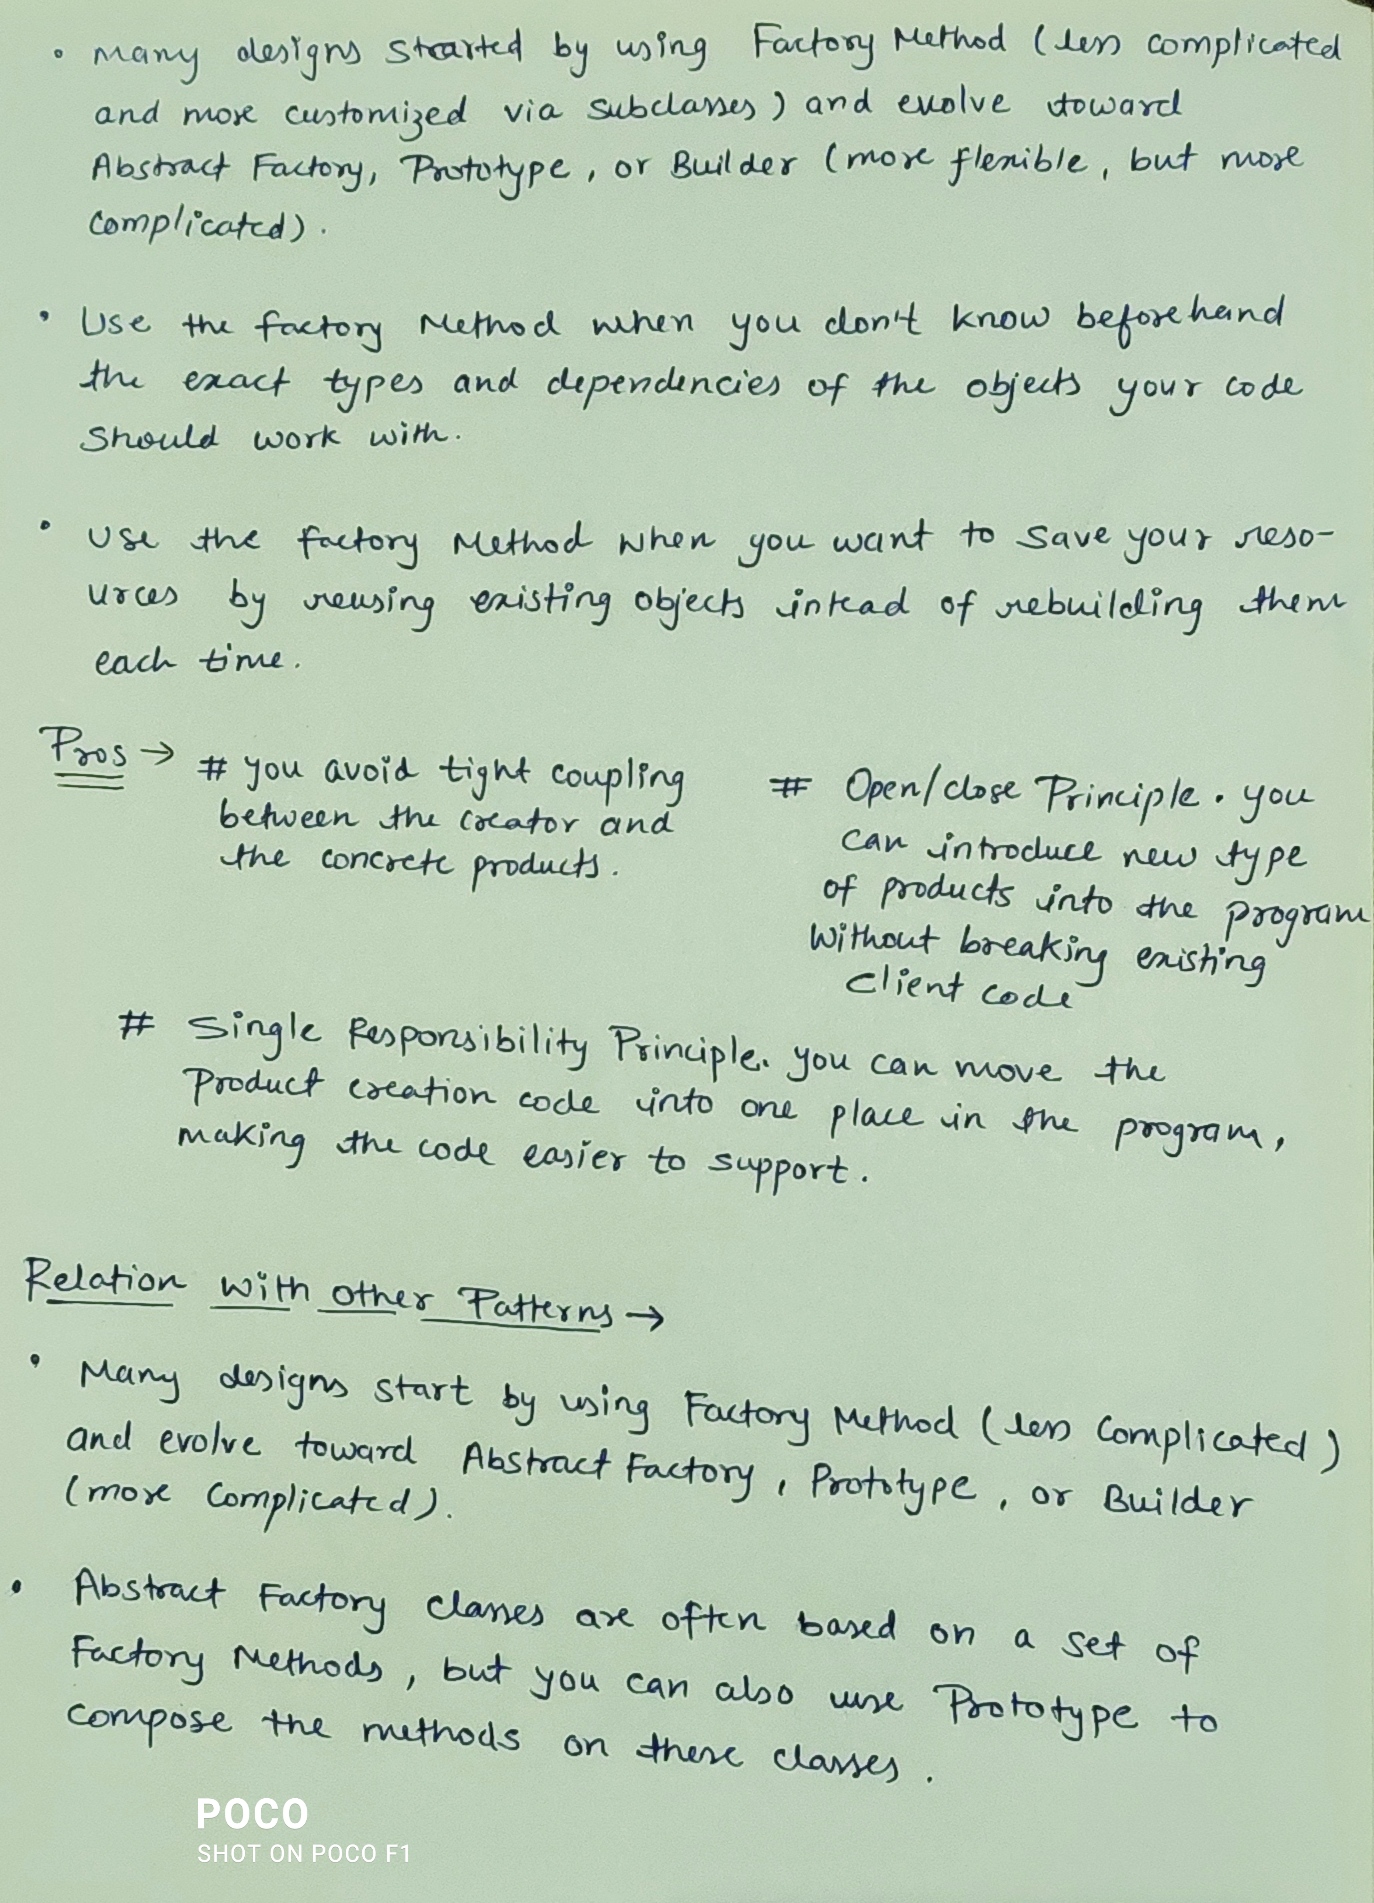 • Many designs started by using Factory Method (less complicated
and more customized via subclasses) and evolve toward
Abstract Factory, Prototype, or Builder (more flexible, but more
complicated).
• Use the factory Method when you don't know beforehand
the exact types and dependencies of the objects your code
should work with.
• Use the factory Method when you want to save your reso-
urces by reusing existing objects intead of rebuilding them
each time.
Pros → # you avoid tight coupling
between the creator and
the concrete products.
# Open/close Principle. you
can introduce new type
of products into the program
without breaking existing
client code
# Single Responsibility Principle. you can move the
Product creation code into one place in the program,
making the code easier to support.
Relation with other Patterns →
• Many designs start by using Factory Method (less complicated)
and evolve toward Abstract Factory, Prototype, or Builder
(more complicated).
• Abstract Factory classes are often based on a set of
Factory Methods, but you can also use Prototype to
compose the methods on these classes.
POCO
SHOT ON POCO F1